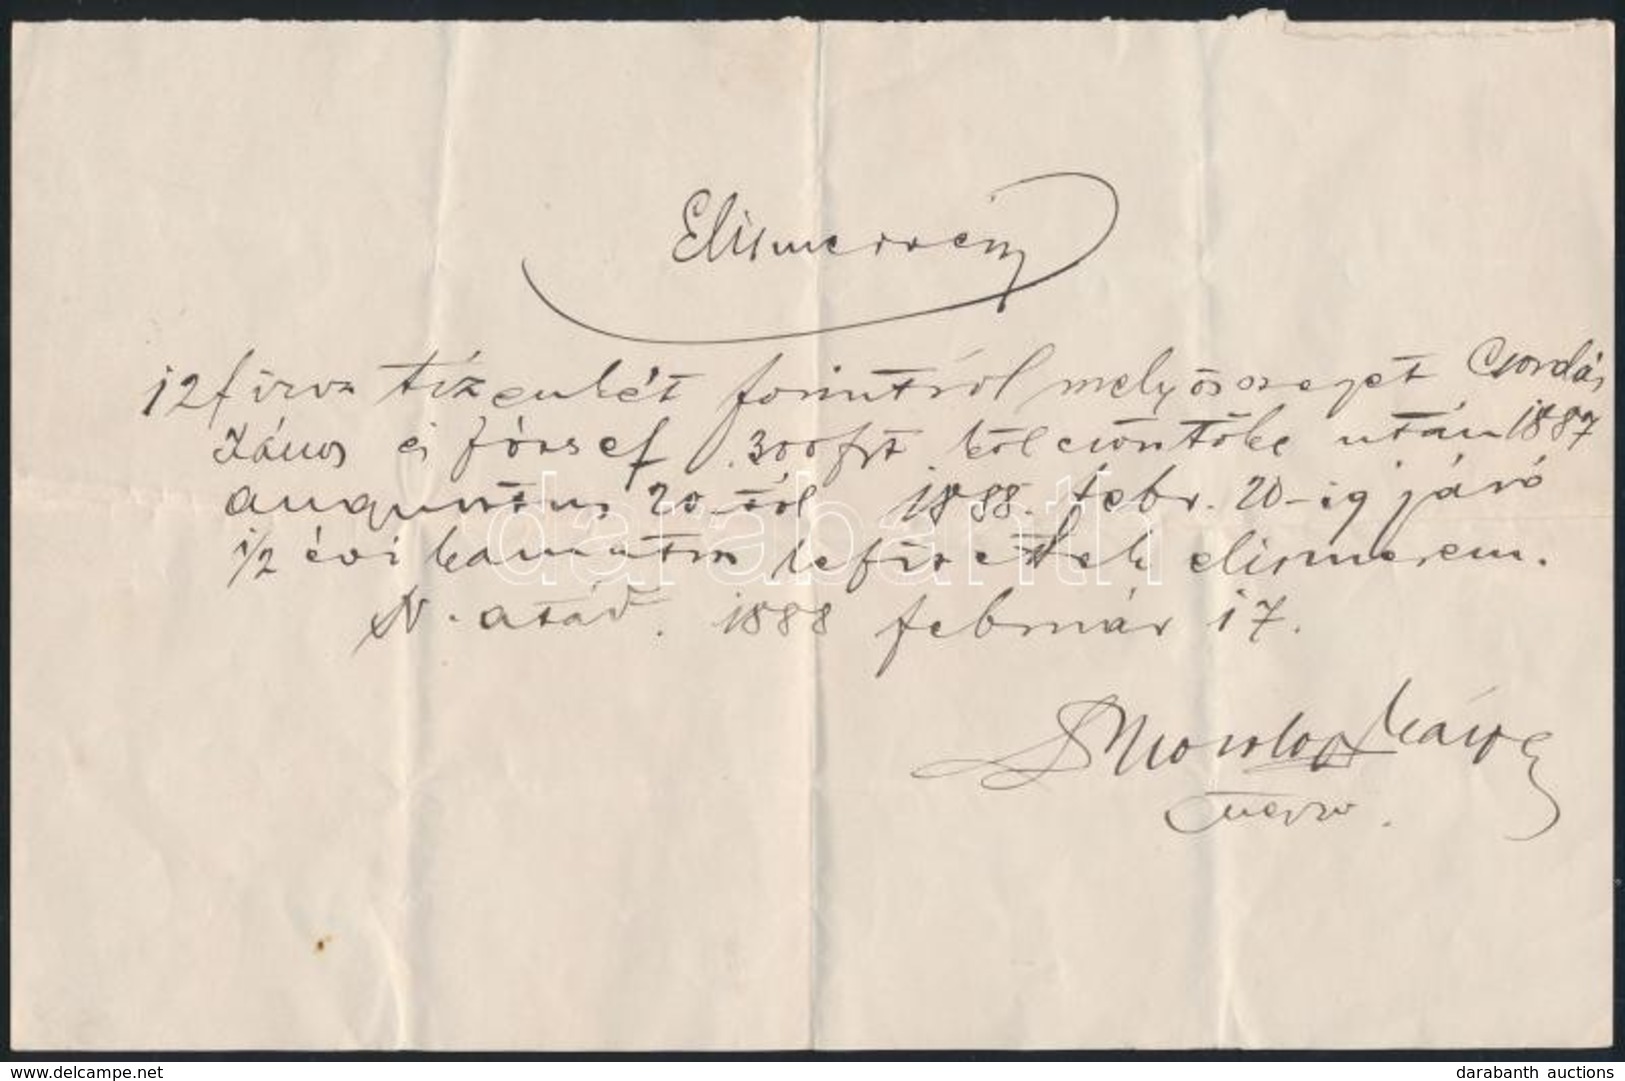 Elismervény
12 f azaz tizenkét forintról mely összeget Csordás
János és József 300 frt kölcsöntőke után 1887
augusztus 20-tól 1888. febr. 20-ig járó
1/2 évi kamatra lefizettek elismerem.
N. atád. 1888 február 17.
darabanth
www.delcampe.net
darabanth auctions